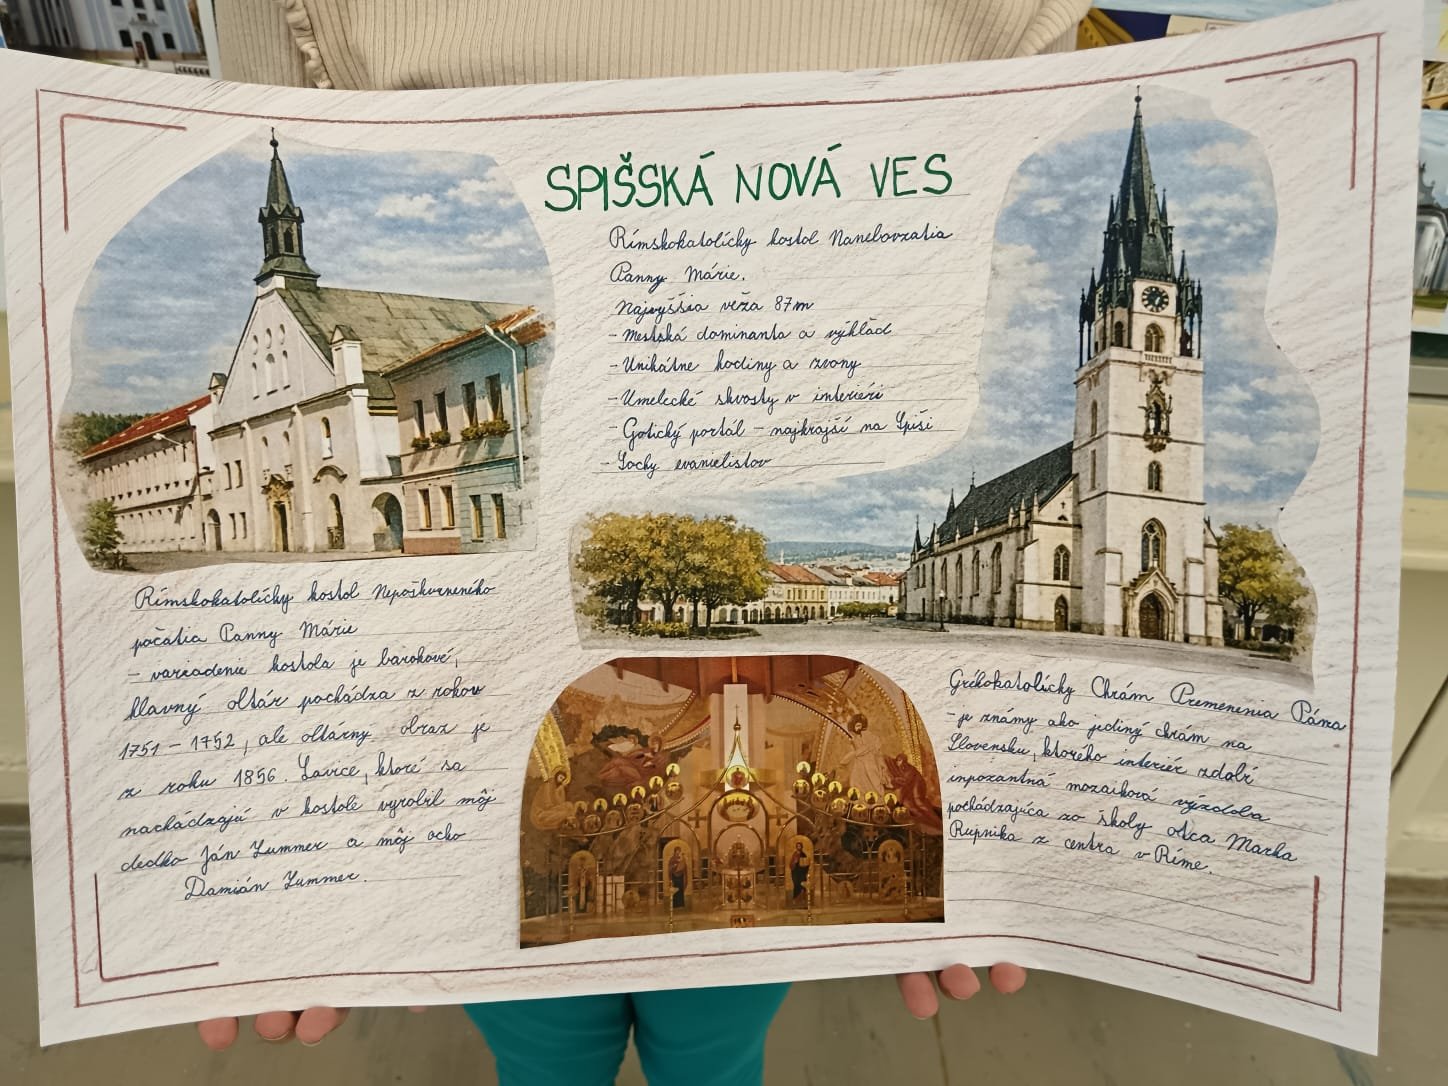 SPIŠSKÁ NOVÁ VES
Rímskokatolícky kostol Nanebovzatia
Panny Márie.
Najvyššia veža 87m
- Mestská dominanta a výhľad
- Unikátne hodiny a zvony
- Umelecké skvosty v interiéri
- Gotický portál - najkrajší na Spiši
- Sochy evanielistov
Rímskokatolícky kostol Nepoškvrneného
počatia Panny Márie
- variadenie kostola je barokové,
hlavný oltár pochádza z rokov
1751 - 1752, ale oltárny obraz je
z roku 1856. Lavice, ktoré sa
nachádzajú v kostole vyrobil môj
dedko Ján Lummer a môj ocko
Damián Lummer.
Grékokatolícky Chrám Premenenia Pána
- je známy ako jediný chrám na
Slovensku, ktorého interiér zdobí
inpozantná mozaiková výzdoba
pochádzajúca zo školy otca Marka
Rupnika z centra v Ríme.